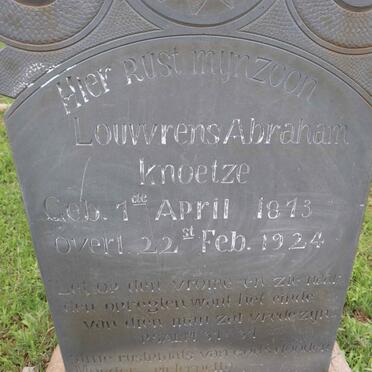 Hier Rust mijn zoon
Louwrens Abraham
Knoetze
Geb. 1ste April 1873
overl. 22st Feb. 1924
Let op den vrome en zie naar
den opregten want het einde
van dien man zal vrede zijn
PSALM